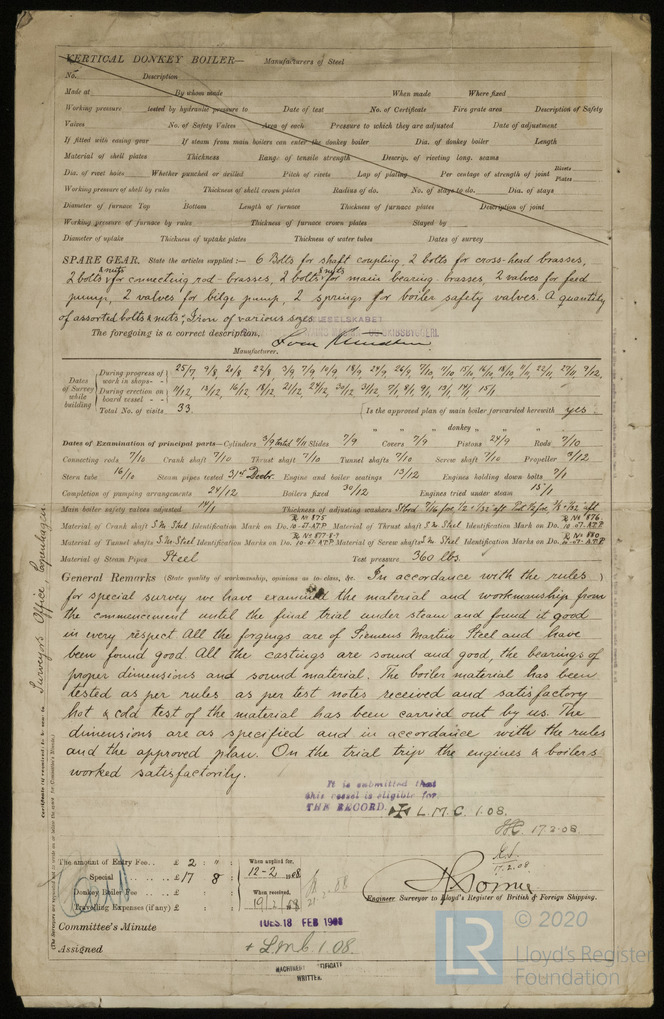 VERTICAL DONKEY BOILER— Manufacturers of Steel
No. Description
Made at By whom made When made Where fixed
Working pressure tested by hydraulic pressure to Date of test No. of Certificate Fire grate area Description of Safety
Valves No. of Safety Valves Area of each Pressure to which they are adjusted Date of adjustment
If fitted with easing gear If steam from main boilers can enter the donkey boiler Dia. of donkey boiler Length
Material of shell plates Thickness Range of tensile strength Descrip. of riveting long. seams
Dia. of rivet holes Whether punched or drilled Pitch of rivets Lap of plating Per centage of strength of joint Rivets Plates
Working pressure of shell by rules Thickness of shell crown plates Radius of do. No. of stays to do. Dia. of stays
Diameter of furnace Top Bottom Length of furnace Thickness of furnace plates Description of joint
Working pressure of furnace by rules Thickness of furnace crown plates Stayed by
Diameter of uptake Thickness of uptake plates Thickness of water tubes Dates of survey
SPARE GEAR. State the articles supplied:— 6 Bolts for shaft coupling, 2 bolts for cross-head brasses,
2 bolts & nuts for connecting rod-brasses, 2 bolts & nuts for main bearing brasses, 2 valves for feed
pump, 2 valves for bilge pump, 2 springs for boiler safety valves. A quantity
of assorted bolts & nuts, iron of various sizes
The foregoing is a correct description,
Manufacturer.
Dates of Survey while building
During progress of work in shops- -
During erection on board vessel - -
Total No. of visits 33.
Is the approved plan of main boiler forwarded herewith yes
" " " donkey " " "
Dates of Examination of principal parts—Cylinders Slides 7/9 Covers 7/9 Pistons 24/9 Rods 7/10
Connecting rods 7/10 Crank shaft 7/10 Thrust shaft 7/10 Tunnel shafts 7/10 Screw shaft 7/10 Propeller 3/12
Stern tube 16/10 Steam pipes tested 31st Decbr. Engine and boiler seatings 13/12 Engines holding down bolts 7/1
Completion of pumping arrangements 24/12 Boilers fixed 30/12 Engines tried under steam 15/1
Main boiler safety valves adjusted 14/1 Thickness of adjusting washers
Material of Crank shaft S.M. Steel Identification Mark on Do. No 875 10-07-A.T.P Material of Thrust shaft S.M. Steel Identification Mark on Do. No 876 10-07. A.T.P
Material of Tunnel shafts S.M. Steel Identification Marks on Do. No 877-8-9 10-07-A.T.P Material of Screw shafts S.M. Steel Identification Marks on Do. No 880 10-07. A.T.P.
Material of Steam Pipes Steel Test pressure 360 lbs.
General Remarks (State quality of workmanship, opinions as to class, &c. In accordance with the rules )
for special survey we have examined the material and workmanship from
the commencement until the final trial under steam and found it good
in every respect. All the forgings are of Siemens Martin Steel and have
been found good. All the castings are sound and good, the bearings of
proper dimensions and sound material. The boiler material has been
tested as per rules as per test notes received and satisfactory
hot & cold test of the material has been carried out by us. The
dimensions are as specified and in accordance with the rules
and the approved plan. On the trial trip the engines & boilers
worked satisfactorily.
It is submitted that
this vessel is eligible for
THE RECORD. L.M.C. 1.08.
17.2.08
17.2.08
The amount of Entry Fee.. £ 2 : " :
Special .. .. .. .. £ 17 : 8 :
Donkey Boiler Fee .. .. £ : :
Travelling Expenses (if any) £ : :
When applied for,
12-2-1908
When received,
19/2/08
Engineer Surveyor to Lloyd's Register of British & Foreign Shipping.
Committee's Minute TUES. 18 FEB 1908
Assigned + L.M.C. 1.08.
MACHINERY CERTIFICATE
WRITTEN.
Surveyor's Office, Copenhagen.
© 2020
LR
Lloyd's Register
Foundation